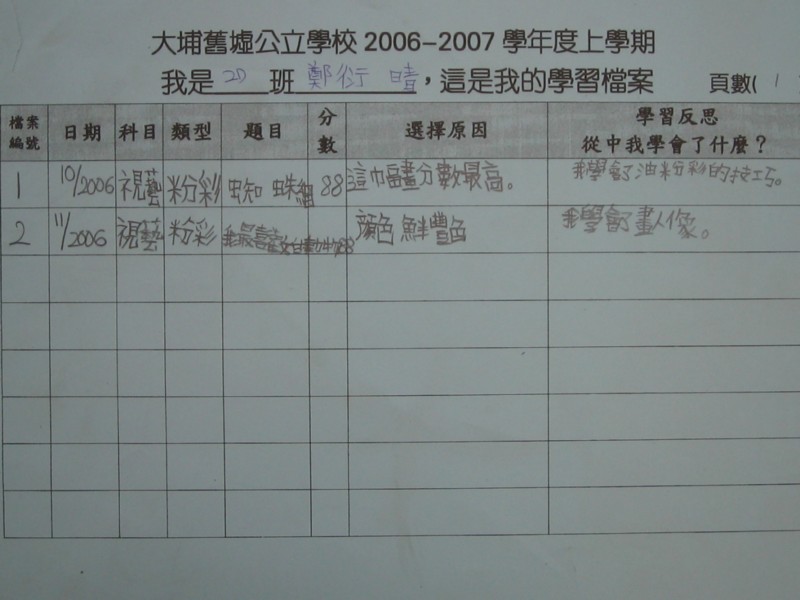 大埔舊墟公立學校 2006-2007 學年度上學期
我是 2D 班 鄭衍晴，這是我的學習檔案 頁數( 1
檔案編號 日期 科目 類型 題目 分數 選擇原因 學習反思 從中我學會了什麼？
1 10/2006 視藝 粉彩 蜘蛛網 88 這巾畐畫分數最高。 我學會了油粉彩的技巧。
2 11/2006 視藝 粉彩 我最喜 動物 88 顏色鮮豔 我學會了畫人像。